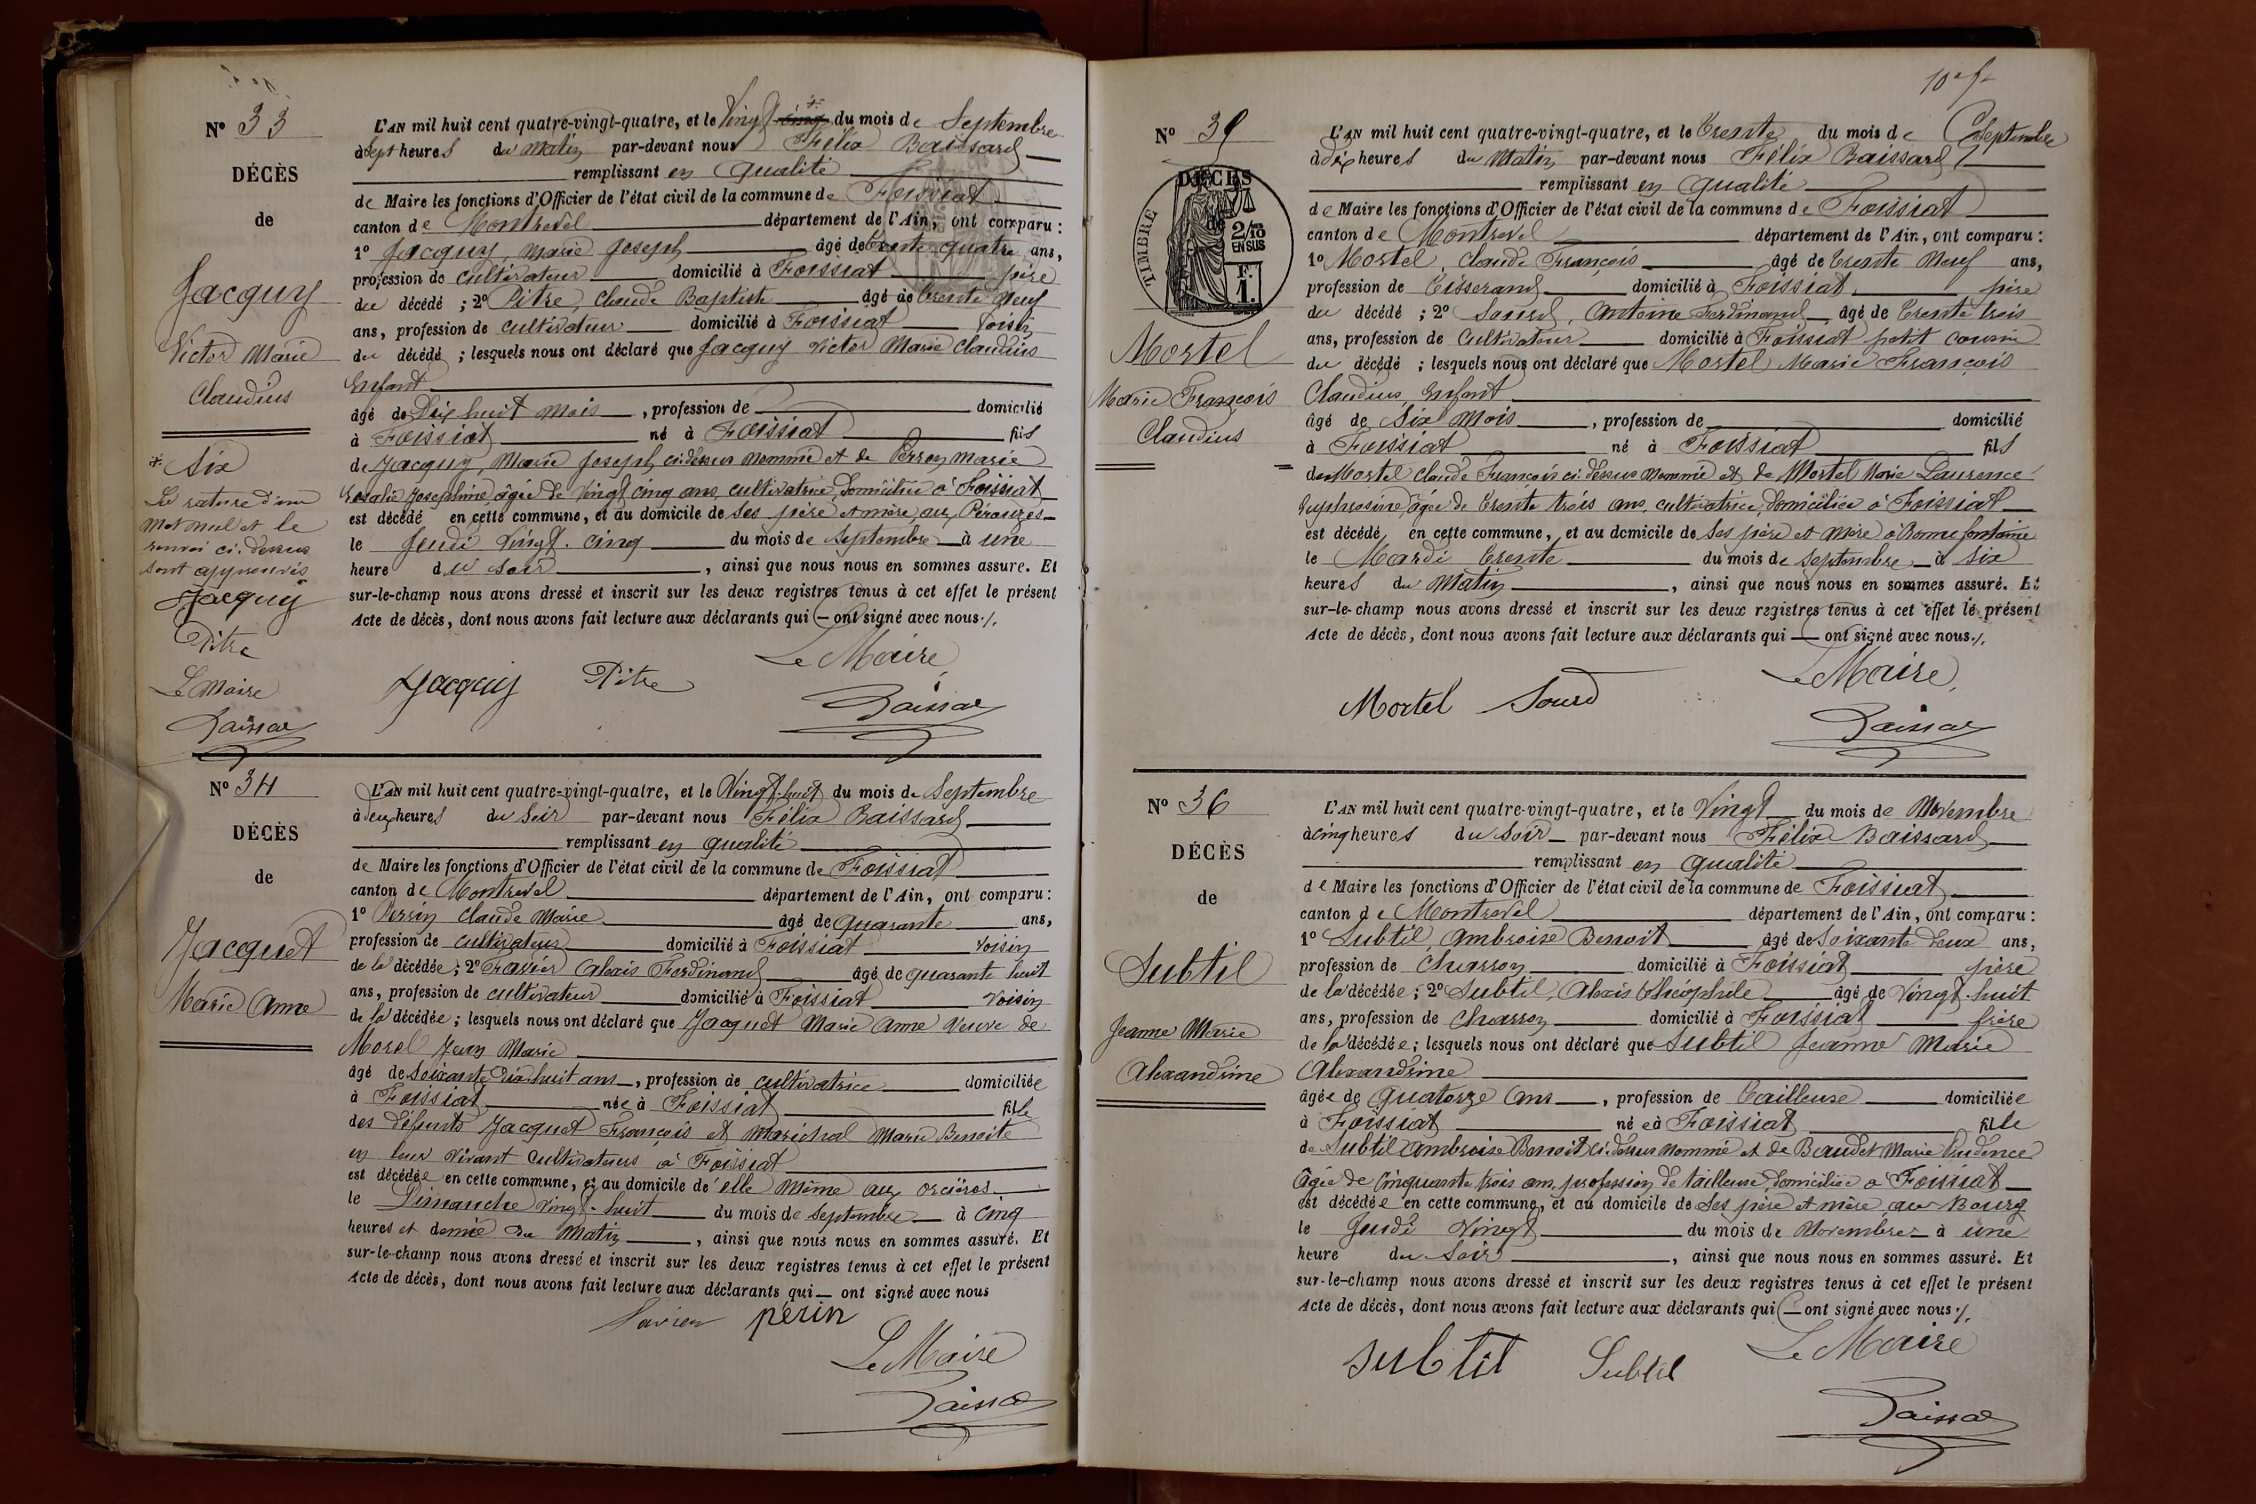 N° 33
DÉCÈS
de
Jacquy
Victor Marie
Claudius
* Six
La rature d'un
mot nul et le
renvoi ci-dessus
sont approuvés
Jacquy
Pitre
Le Maire
Baissard
L'AN mil huit cent quatre-vingt-quatre, et le Vingt cinq * du mois de Septembre
à Sept heures du Matin par-devant nous Félix Baissard
remplissant en qualité
de Maire les fonctions d'Officier de l'état civil de la commune de Foissiat
canton de Montrevel département de l'Ain, ont comparu :
1° Jacquy, Marie Joseph âgé de trente quatre ans,
profession de cultivateur domicilié à Foissiat père
du décédé ; 2° Pitre, Claude Baptiste âgé de trente neuf
ans, profession de cultivateur domicilié à Foissiat Voisin
du décédé ; lesquels nous ont déclaré que Jacquy Victor Marie Claudius
Enfant
âgé de Dix huit mois, profession de domicilié
à Foissiat né à Foissiat fils
de Jacquy, Marie Joseph ci-dessus nommé et de Perron Marie
Rosalie Josephine, âgée de Vingt cinq ans, cultivatrice, domiciliée à Foissiat
est décédé en cette commune, et au domicile de ses père et mère aux Pérouzes
le Jeudi Vingt-cinq du mois de Septembre à une
heure du soir, ainsi que nous nous en sommes assuré. Et
sur-le-champ nous avons dressé et inscrit sur les deux registres tenus à cet effet le présent
Acte de décès, dont nous avons fait lecture aux déclarants qui ont signé avec nous./.
Le Maire
Jacquy Pitre
Baissard
N° 34
DÉCÈS
de
Jacquet
Marie Anne
L'AN mil huit cent quatre-vingt-quatre, et le Vingt-huit du mois de Septembre
à deux heures du Soir par-devant nous Félix Baissard
remplissant en qualité
de Maire les fonctions d'Officier de l'état civil de la commune de Foissiat
canton de Montrevel département de l'Ain, ont comparu :
1° Perrin Claude Marie âgé de quarante ans,
profession de cultivateur domicilié à Foissiat Voisin
de la décédée ; 2° Favier Alexis Ferdinand âgé de quarante huit
ans, profession de cultivateur domicilié à Foissiat Voisin
de la décédée ; lesquels nous ont déclaré que Jacquet Marie Anne Veuve de
Morel Jean Marie
âgé de soixante dix-huit ans, profession de cultivatrice domiciliée
à Foissiat née à Foissiat fille
des défunts Jacquet François et Maréchal Marie Benoite
en leur vivant cultivateurs à Foissiat
est décédée en cette commune, et au domicile de elle même aux orcières
le Dimanche Vingt-huit du mois de Septembre à Cinq
heures et demie du Matin, ainsi que nous nous en sommes assuré. Et
sur-le-champ nous avons dressé et inscrit sur les deux registres tenus à cet effet le présent
Acte de décès, dont nous avons fait lecture aux déclarants qui ont signé avec nous
Favier perin
Le Maire
Baissard
N° 35
DÉCÈS
de
TIMBRE
2/10
EN SUS
F.
1.
Mortel
Marie François
Claudius
L'AN mil huit cent quatre-vingt-quatre, et le trente du mois de Septembre
à dix heures du Matin par-devant nous Félix Baissard
remplissant en qualité
de Maire les fonctions d'Officier de l'état civil de la commune de Foissiat
canton de Montrevel département de l'Ain, ont comparu :
1° Mortel, Claude François âgé de trente neuf ans,
profession de tisserand domicilié à Foissiat père
du décédé ; 2° Sourd, Antoine Ferdinand âgé de trente trois
ans, profession de cultivateur domicilié à Foissiat petit cousin
du décédé ; lesquels nous ont déclaré que Mortel Marie François
Claudius, Enfant
âgé de Six mois, profession de domicilié
à Foissiat né à Foissiat fils
de Mortel Claude François ci-dessus nommé et de Mortel Marie Laurence
Euphrosine, âgée de trente trois ans, cultivatrice, domiciliée à Foissiat
est décédé en cette commune, et au domicile de ses père et mère à Bonne fontaine
le Mardi trente du mois de Septembre à six
heures du Matin, ainsi que nous nous en sommes assuré. Et
sur-le-champ nous avons dressé et inscrit sur les deux registres tenus à cet effet le présent
Acte de décès, dont nous avons fait lecture aux déclarants qui ont signé avec nous./.
Le Maire,
Mortel Sourd
Baissard
N° 36
DÉCÈS
de
Subtil
Jeanne Marie
Alexandrine
L'AN mil huit cent quatre-vingt-quatre, et le Vingt du mois de Novembre
à cinq heures du Soir par-devant nous Félix Baissard
remplissant en qualité
de Maire les fonctions d'Officier de l'état civil de la commune de Foissiat
canton de Montrevel département de l'Ain, ont comparu :
1° Subtil, Ambroise Benoit âgé de soixante deux ans,
profession de Charron domicilié à Foissiat père
de la décédée ; 2° Subtil, Alexis théophile âgé de Vingt-huit
ans, profession de Charron domicilié à Foissiat frère
de la décédée ; lesquels nous ont déclaré que Subtil Jeanne Marie
Alexandrine
âgée de quatorze ans, profession de tailleuse domiciliée
à Foissiat née à Foissiat fille
de Subtil Ambroise Benoit ci-dessus nommé et de Baudet Marie Prudence
âgée de Cinquante trois ans, profession de tailleuse, domiciliée à Foissiat
est décédée en cette commune, et au domicile de ses père et mère au Bourg
le Jeudi Vingt du mois de Novembre à une
heure du Soir, ainsi que nous nous en sommes assuré. Et
sur-le-champ nous avons dressé et inscrit sur les deux registres tenus à cet effet le présent
Acte de décès, dont nous avons fait lecture aux déclarants qui ont signé avec nous./.
Le Maire
subtil Subtil
Baissard